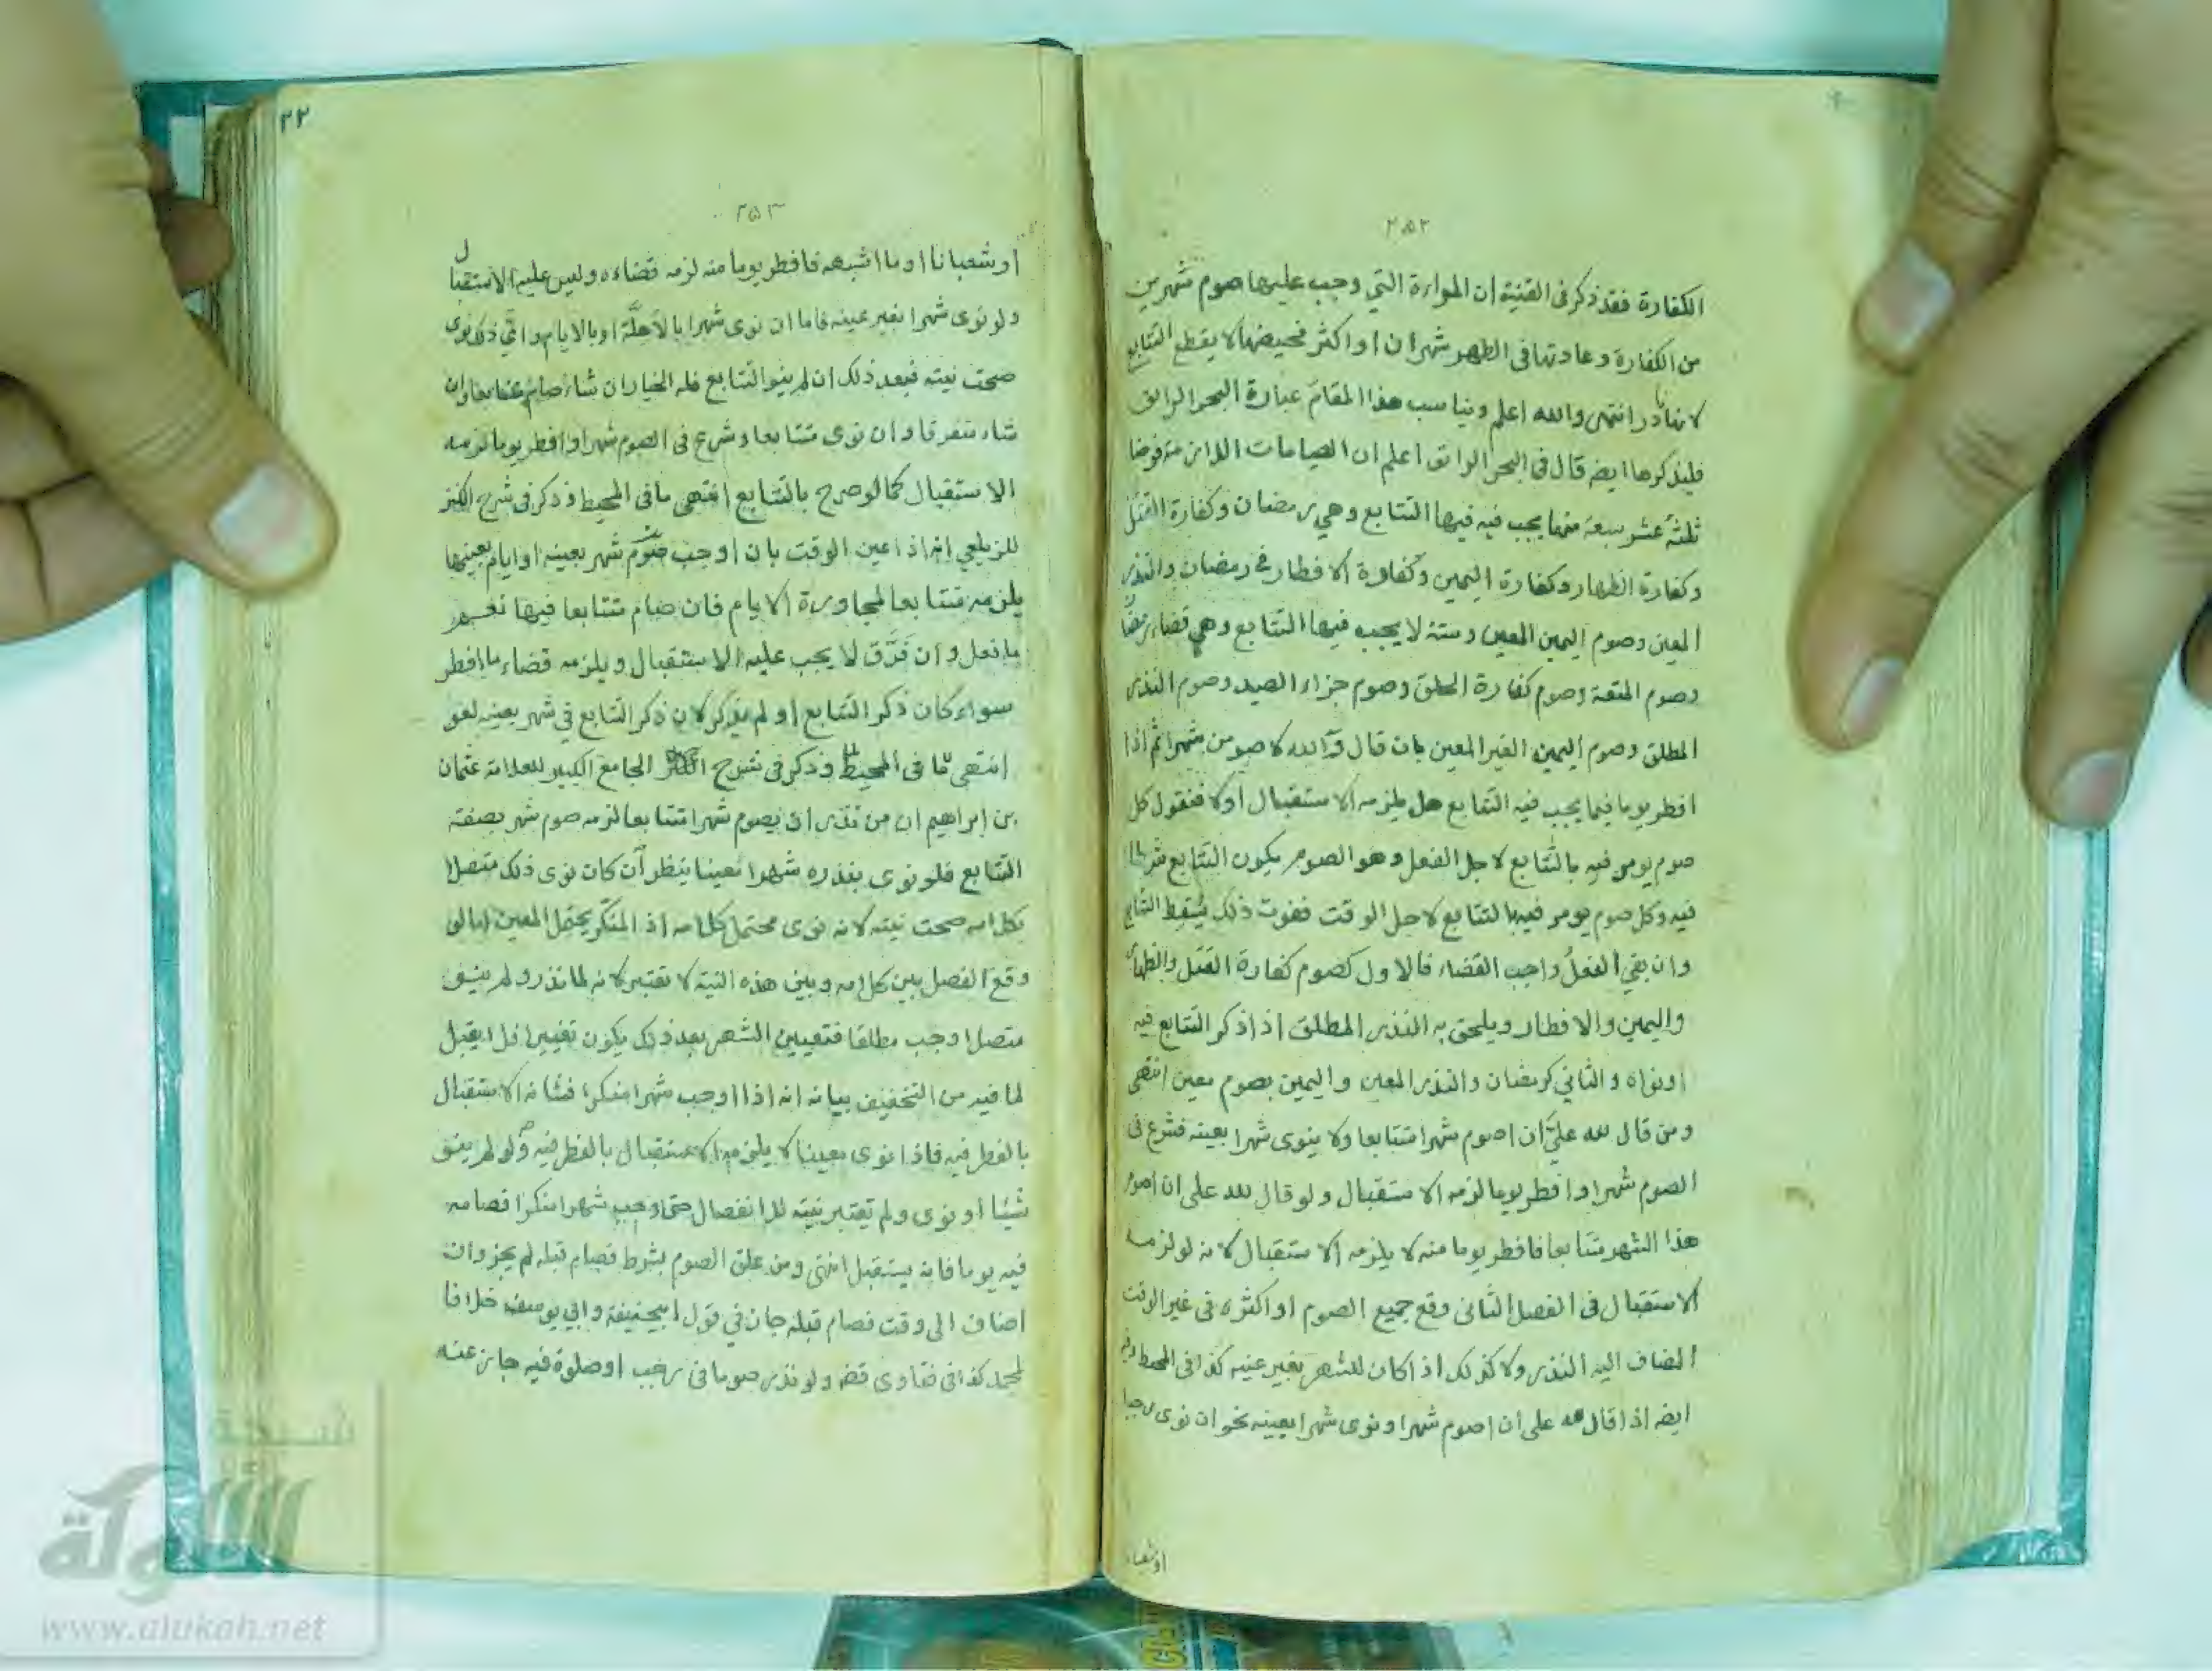 ٢٥٢
الكفارة فقد ذكر فى القنية ان المراءة التي وجب عليها صوم شهرين
من الكفارة وعادتها فى الطهر شهران او اكثر فحيضها لا يقطع التتابع
لانها نادر انتهى والله اعلم ويناسب هذا المقامَ عبارة البحر الرائق
فليذكرها ايضه قال فى البحر الرائق اعلم ان الصيامات اللازمة فرضا
ثلثة عشر سبعة منها يجب فيه فيها التتابع وهي رمضان وكفارة القتل
وكفارة الظهار وكفارة اليمين وكفارة الافطار في رمضان والنذر
المعين وصوم اليمين المعين وستة لا يجب فيها التتابع وهي قضاء رمضان
وصوم المتعة وصوم كفارة الحلق وصوم جزاء الصيد وصوم النذر
المطلق وصوم اليمين الغير المعين بان قال والله لاصومن شهرا ثم اذا
افطر يوما فيما يجب فيه التتابع هل يلزمه الاستقبال او لا فنقول كل
صوم يومر فيه بالتتابع لاجل الفعل وهو الصوم يكون التتابع شرطا
فيه وكل صوم يومر فيه بالتتابع لاجل الوقت ففوت ذلك يُسقِط التتابع
وان بقي الفعلُ واجب القضاء فالاول كصوم كفارة القتل والظهار
واليمين والافطار ويلحق به النذر المطلق اذا ذكر التتابع فيه
او نواه والثاني كرمضان والنذر المعين واليمين بصوم معين انتهى
ومن قال لله عليّ ان اصوم شهرا متتابعا ولا ينوى شهرا بعينه فشرع فى
الصوم شهرا وافطر يوما لزمه الاستقبال ولو قال لله على ان اصوم
هذا الشهر متتابعا فافطر يوما منه لا يلزمه الاستقبال لانه لو لزمه
الاستقبال فى الفصل الثانى وقع جميع الصوم او اكثره فى غير الوقت
المضاف اليه النذر ولا كذلك اذا كان للشهر بغير عينه كذا فى المحيط وفيه
ايضه اذا قال لله على ان اصوم شهرا ونوى شهرا بعينه نحو ان نوى رجبا
اوشعبا
٢٢
٢٥٣
او شعبانا او ما اشبهه فافطر يوما منه لزمه قضاءه وليس عليه الاستقبال
ولو نوى شهرا بغير عينه فاما ان نوى شهرا بالاَهلَّة او بالايام واىَّ ذلك نوى
صحت نيته فبعد ذلك ان لم ينو التتابع فله الخيار ان شاء صام متتابعا وان
شاء متفرقا وان نوى متتابعا وشرع فى الصوم شهرا وافطر يوما لزمه
الاستقبال كما لو صرح بالتتابع انتهى ما فى المحيط وذكر فى شرح الكنز
للزيلعي انه اذا عين الوقت بان اوجب صوم شهر بعينه او ايام بعينها
يلزمه متتابعا لمجاورة الايام فان صام متتابعا فيها
ما فعل وان فَرَّق لا يجب عليه الاستقبال ويلزمه قضاء ما افطر
سواء كان ذكر التتابع او لم يذكر لان ذكر التتابع في شهر بعينه لغو
انتهى ما فى المحيط وذكر فى شرح الجامع الكبير للعلامة عثمان
بن ابراهيم ان من نذر ان يصوم شهرا متتابعا لزمه صوم شهر بصفة
التتابع فلو نوى بنذره شهرا معينا ينظر ان كان نوى ذلك متصلا
بكلامه صحت نيته لانه نوى محتمل كلامه اذ المنكّر يحتمل المعين اما لو
وقع الفصل بين كلامه وبين هذه النية لا تعتبر لانه لما نذر ولم ينو
متصلا وجب مطلقا فتعيين الشهر بعد ذلك يكون تغييرا فلا يقبل
لما فيه من التخفيف بيانه انه اذا اوجب شهرا منكرا فشانه الاستقبال
بالفطر فيه فاذا نوى معينا لا يلزمه الاستقبال بالفطر فيه ولو لم ينو
شيئا او نوى ولم تعتبر نيته للانفصال حتى وجب شهرا منكرا فصامه
فيه يوما فانه يستقبل انتهى ومن علق الصوم بشرط فصام قبله لم يجز وان
اضاف الى وقت فصام قبله جاز في قول ابيحنيفة وابي يوسف خلافا
لمحمد كذا فى فتاوى قضه ولو نذر صوما فى رجب او صلوة فيه جاز عنه
شبكة
الألوكة
www.alukah.net